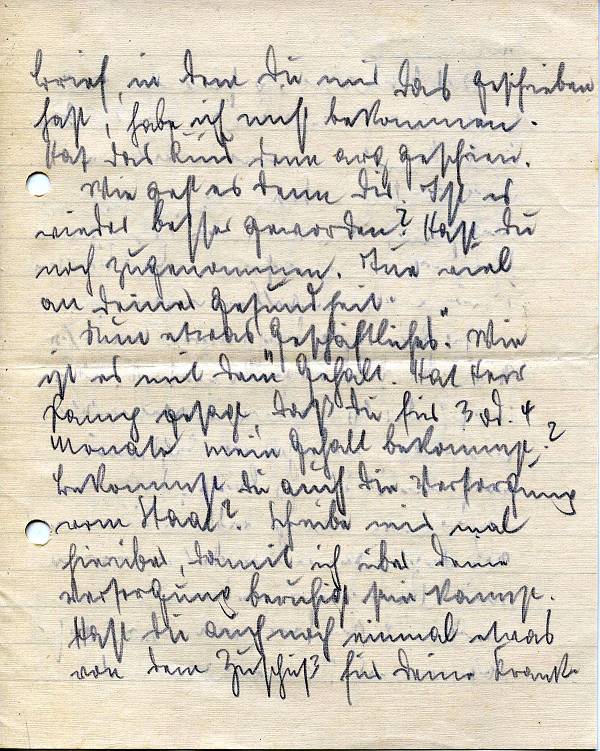 brief, in dem du mir das geschrieben
hast, habe ich nicht bekommen.
Hat das Kind denn arg geschrien.
Wie geht es denn dir. Ist es
wieder besser geworden? Hast du
noch zugenommen. Tue viel
an deiner Gesundheit.
Nun etwas "Geschäftliches". Wie
ist es mit dem Gehalt. Hat Herr
gesagt, daß du für 3 od. 4
Monate mein Gehalt bekommst?
Bekommst du auch die Versorgung
vom Staat? Schreibe mir mal
hierüber, damit ich über deine
Versorgung beruhigt sein kann.
Hast du auch noch einmal etwas
von dem Zuschuß für deine Krank-